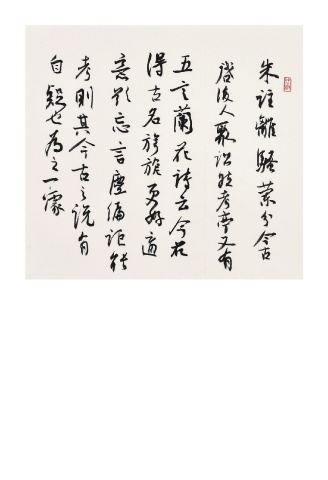 朱註離騷兰分今古
啓後人聚訟然考亭又有
五言蘭花詩云今花
得古名旖旎更好適
意欲忘言塵編詎能
考則其今古之说自
自疑也為之一噱